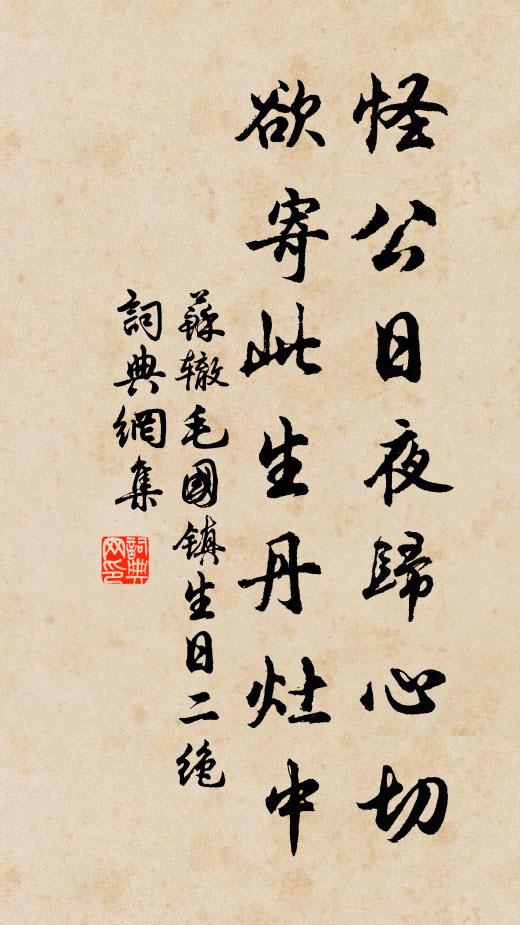 怪公日夜歸心切
欲寄此生丹灶中
蘇辙毛國鎮生日二绝
詞典網集
詞典網印